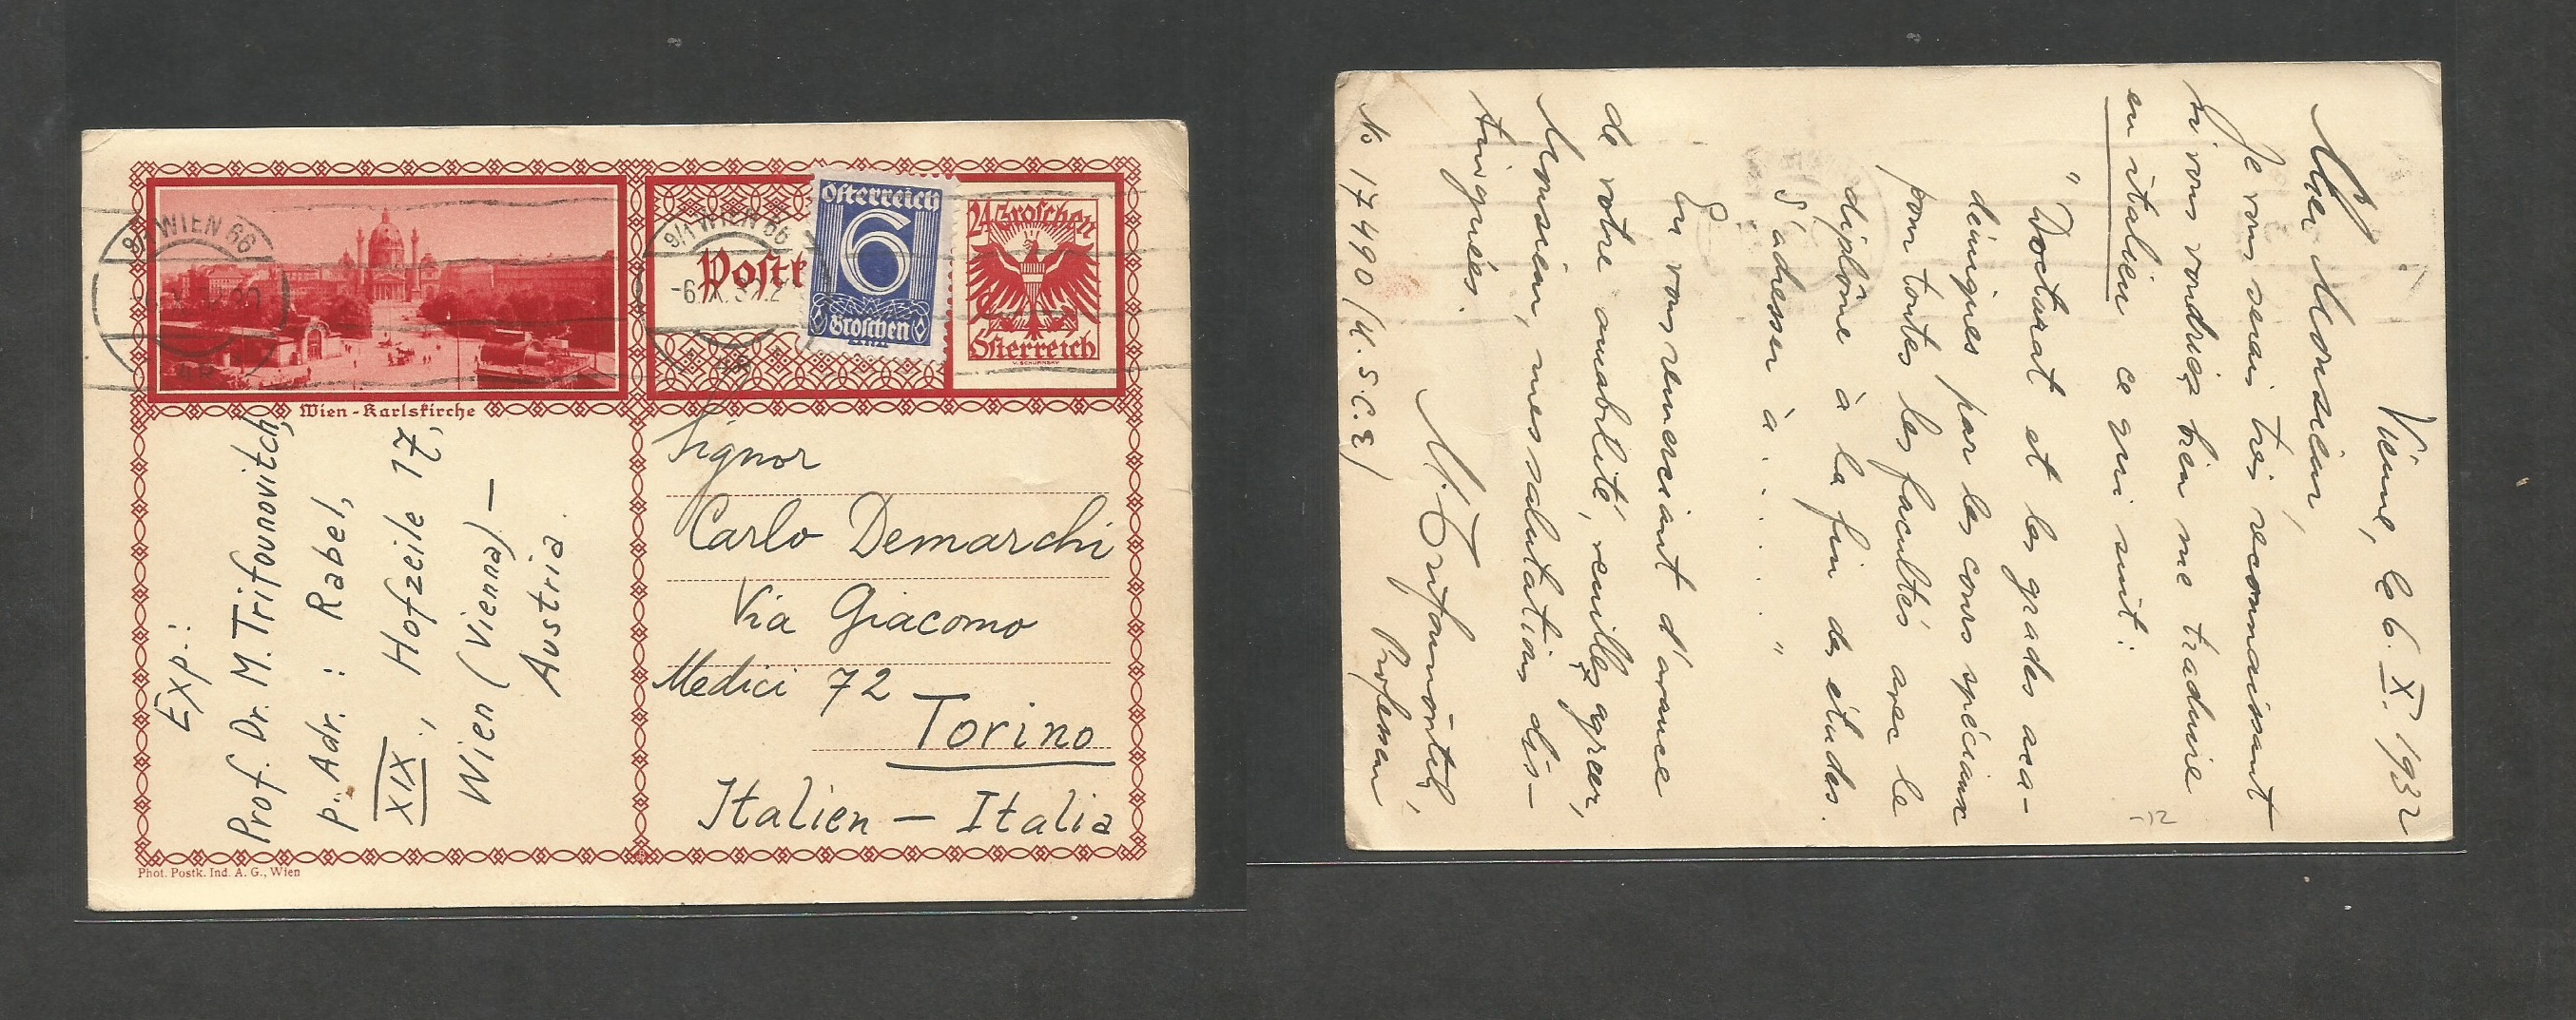 WIEN 66
9/1 WIEN 66
-6.IX.32.2
Postk
Österreich
6
Groschen
24 Groschen
Österreich
Wien - Karlskirche
Exp.:
Prof. Dr. M. Trifounovitch,
p. Adr. : Rabel,
XIX., Hofzeile 17,
Wien (Vienna) —
Austria.
Signor
Carlo Demarchi
Via Giacomo
Medici 72
Torino
Italien — Italia
Phot. Postk. Ind. A. G., Wien
Vienne, le 6. X. 1932
Cher Monsieur,
Je vous serais très reconnaissant
si vous voudriez bien me traduire
en italien ce qui suit:
"Doctorat et les grades aca-
démiques par les cours spéciaux
pour toutes les facultés avec le
diplôme à la fin des études.
S'adresser à . . . . . "
En vous remerciant d'avance
de votre amabilité, veuillez agréer,
Monsieur, mes salutations dis-
tinguées.
M. Trifounovitch,
Professeur
No 17490 (K.S.C.E)
-12